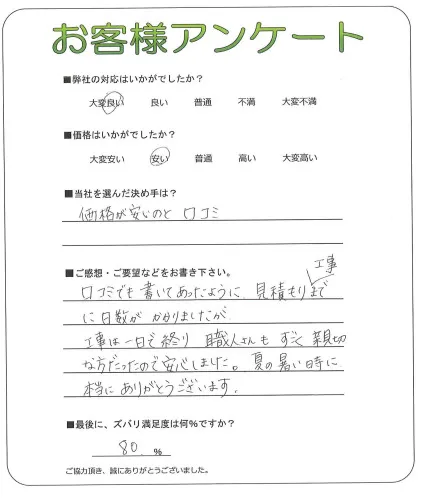 お客様アンケート
■弊社の対応はいかがでしたか？
大変良い 良い 普通 不満 大変不満
■価格はいかがでしたか？
大変安い 安い 普通 高い 大変高い
■当社を選んだ決め手は？
価格が安いのと 口コミ
■ご感想・ご要望などをお書き下さい。
工事
口コミでも書いてあったように、見積もりまで
に日数が かかりましたが
工事は一日で終り 職人さんも すごく 親切
な方だったので安心しました。夏の暑い時に
本当に ありがとうございます.
■最後に、ズバリ満足度は何％ですか？
80. %
ご協力頂き、誠にありがとうございました。